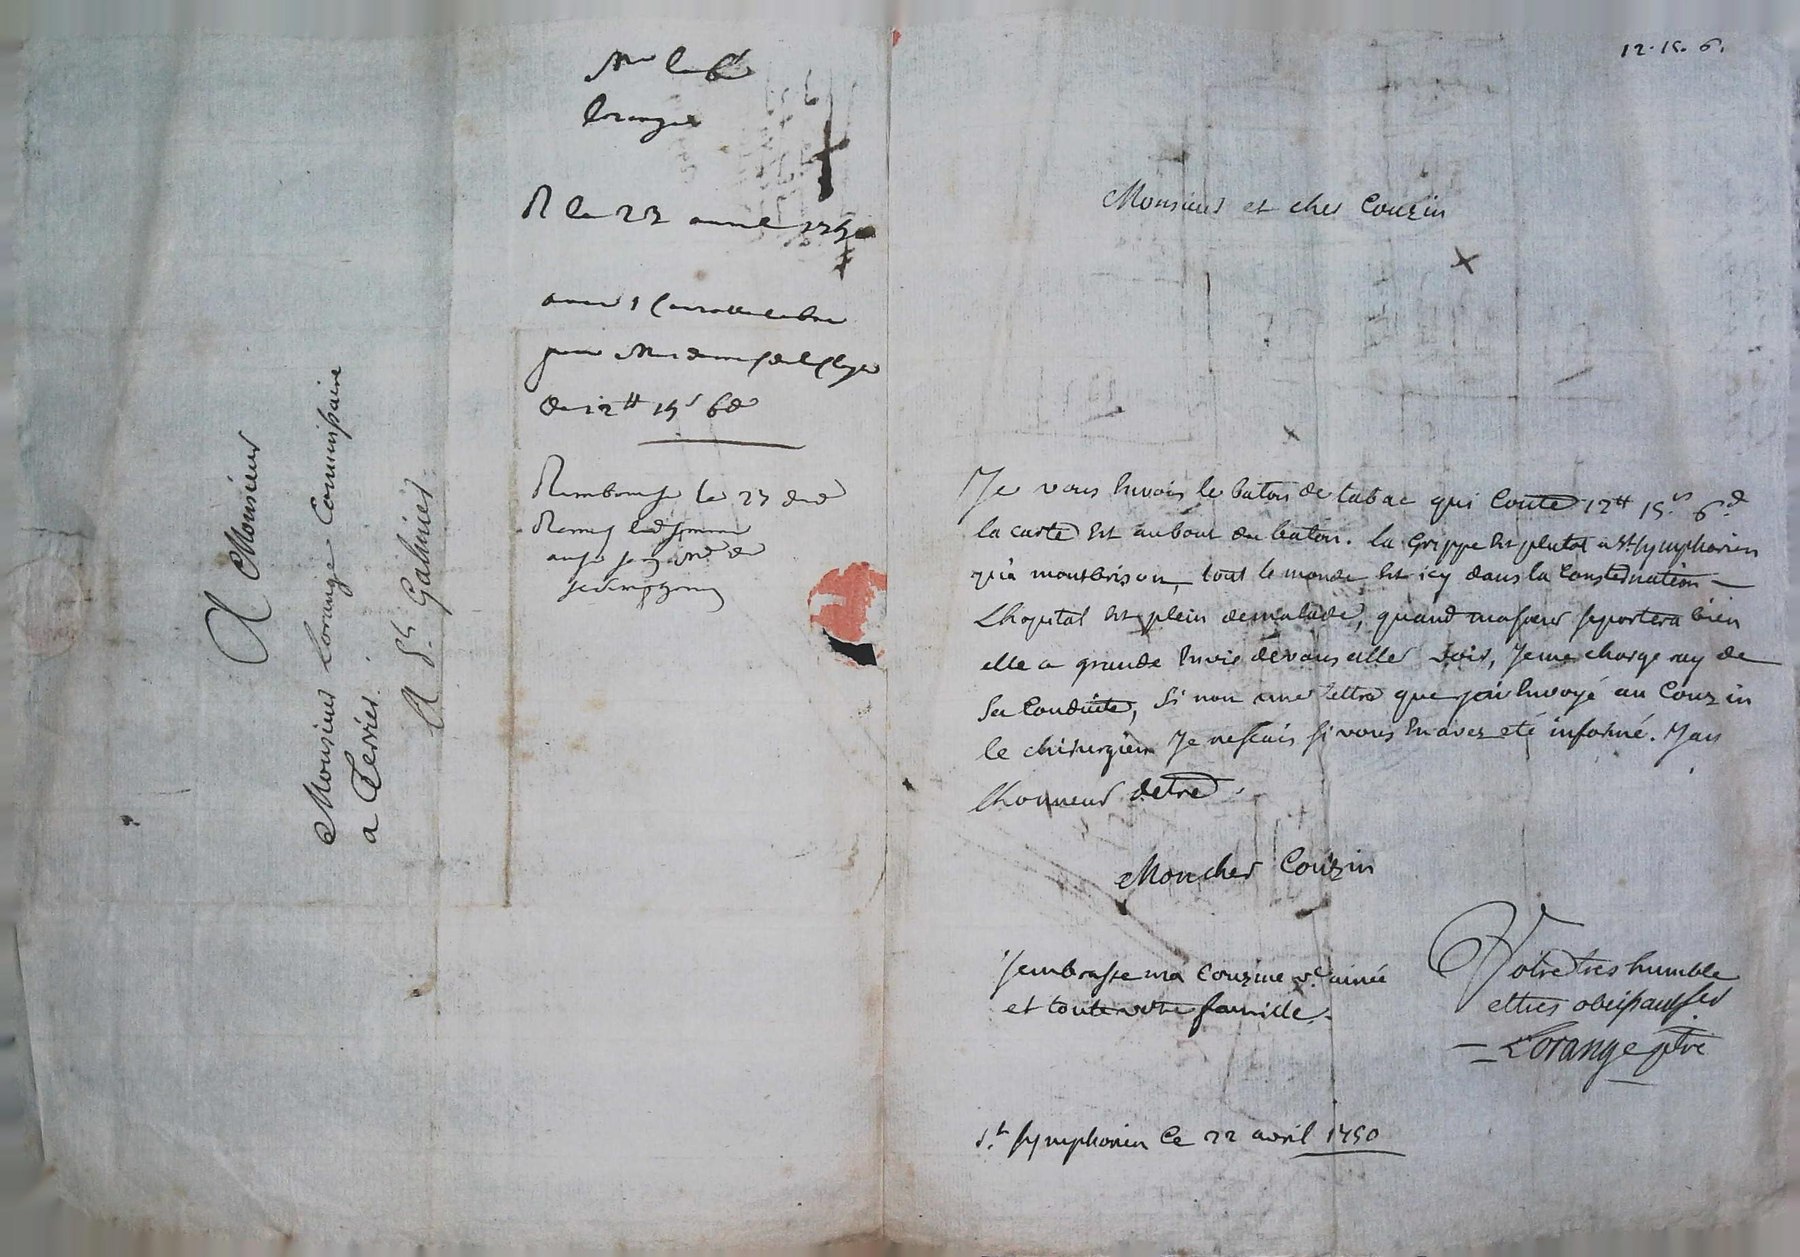 A Monsieur
Monsieur Lorange Commissaire
a Terrier.
A St. Galmier
Mr le
lorange
R le 23 avril 1750
pour
de 12tt 15s 6d
Rembourse le 23 dud
12. 15. 6.
Monsieur et cher Couzin
Je vous Envois le baton de tabac qui Coute 12tt 15.s 6.d
la carte Est aubout du baton. la Grippe Est plutot a St. symphorien
qu'a montbrison, tout le monde Est icy dans la Consternation
Lhopital Est plein demalade, quand masoeur seportera bien
elle a grande Envie devous aller voir, Jeme charge ray de
sa Conduite, si non une lettre que jai Envoyé au Couzin
le chirurgien Je nescais si vous En avez eté informé. Jay
lhonneur detre.
Moncher Couzin
Jembrasse ma Couzine vc. ainée
et toute votre famille.
Votre tres humble
ettres obeissant ser
Lorange ptre
St. symphorien Ce 22 avril 1750